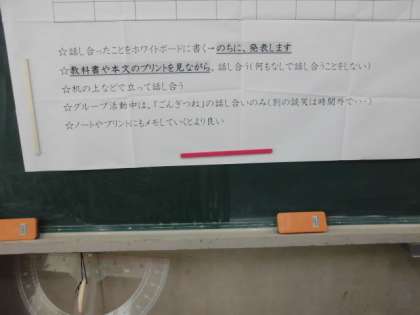 ☆話し合ったことをホワイトボードに書く→のちに、発表します
☆教科書や本文のプリントを見ながら、話し合う(何もなしで話し合うことをしない)
☆机の上などで立って話し合う
☆グループ活動中は、「ごんぎつね」の話し合いのみ(別の談笑は時間外で・・・)
☆ノートやプリントにもメモしていくとより良い